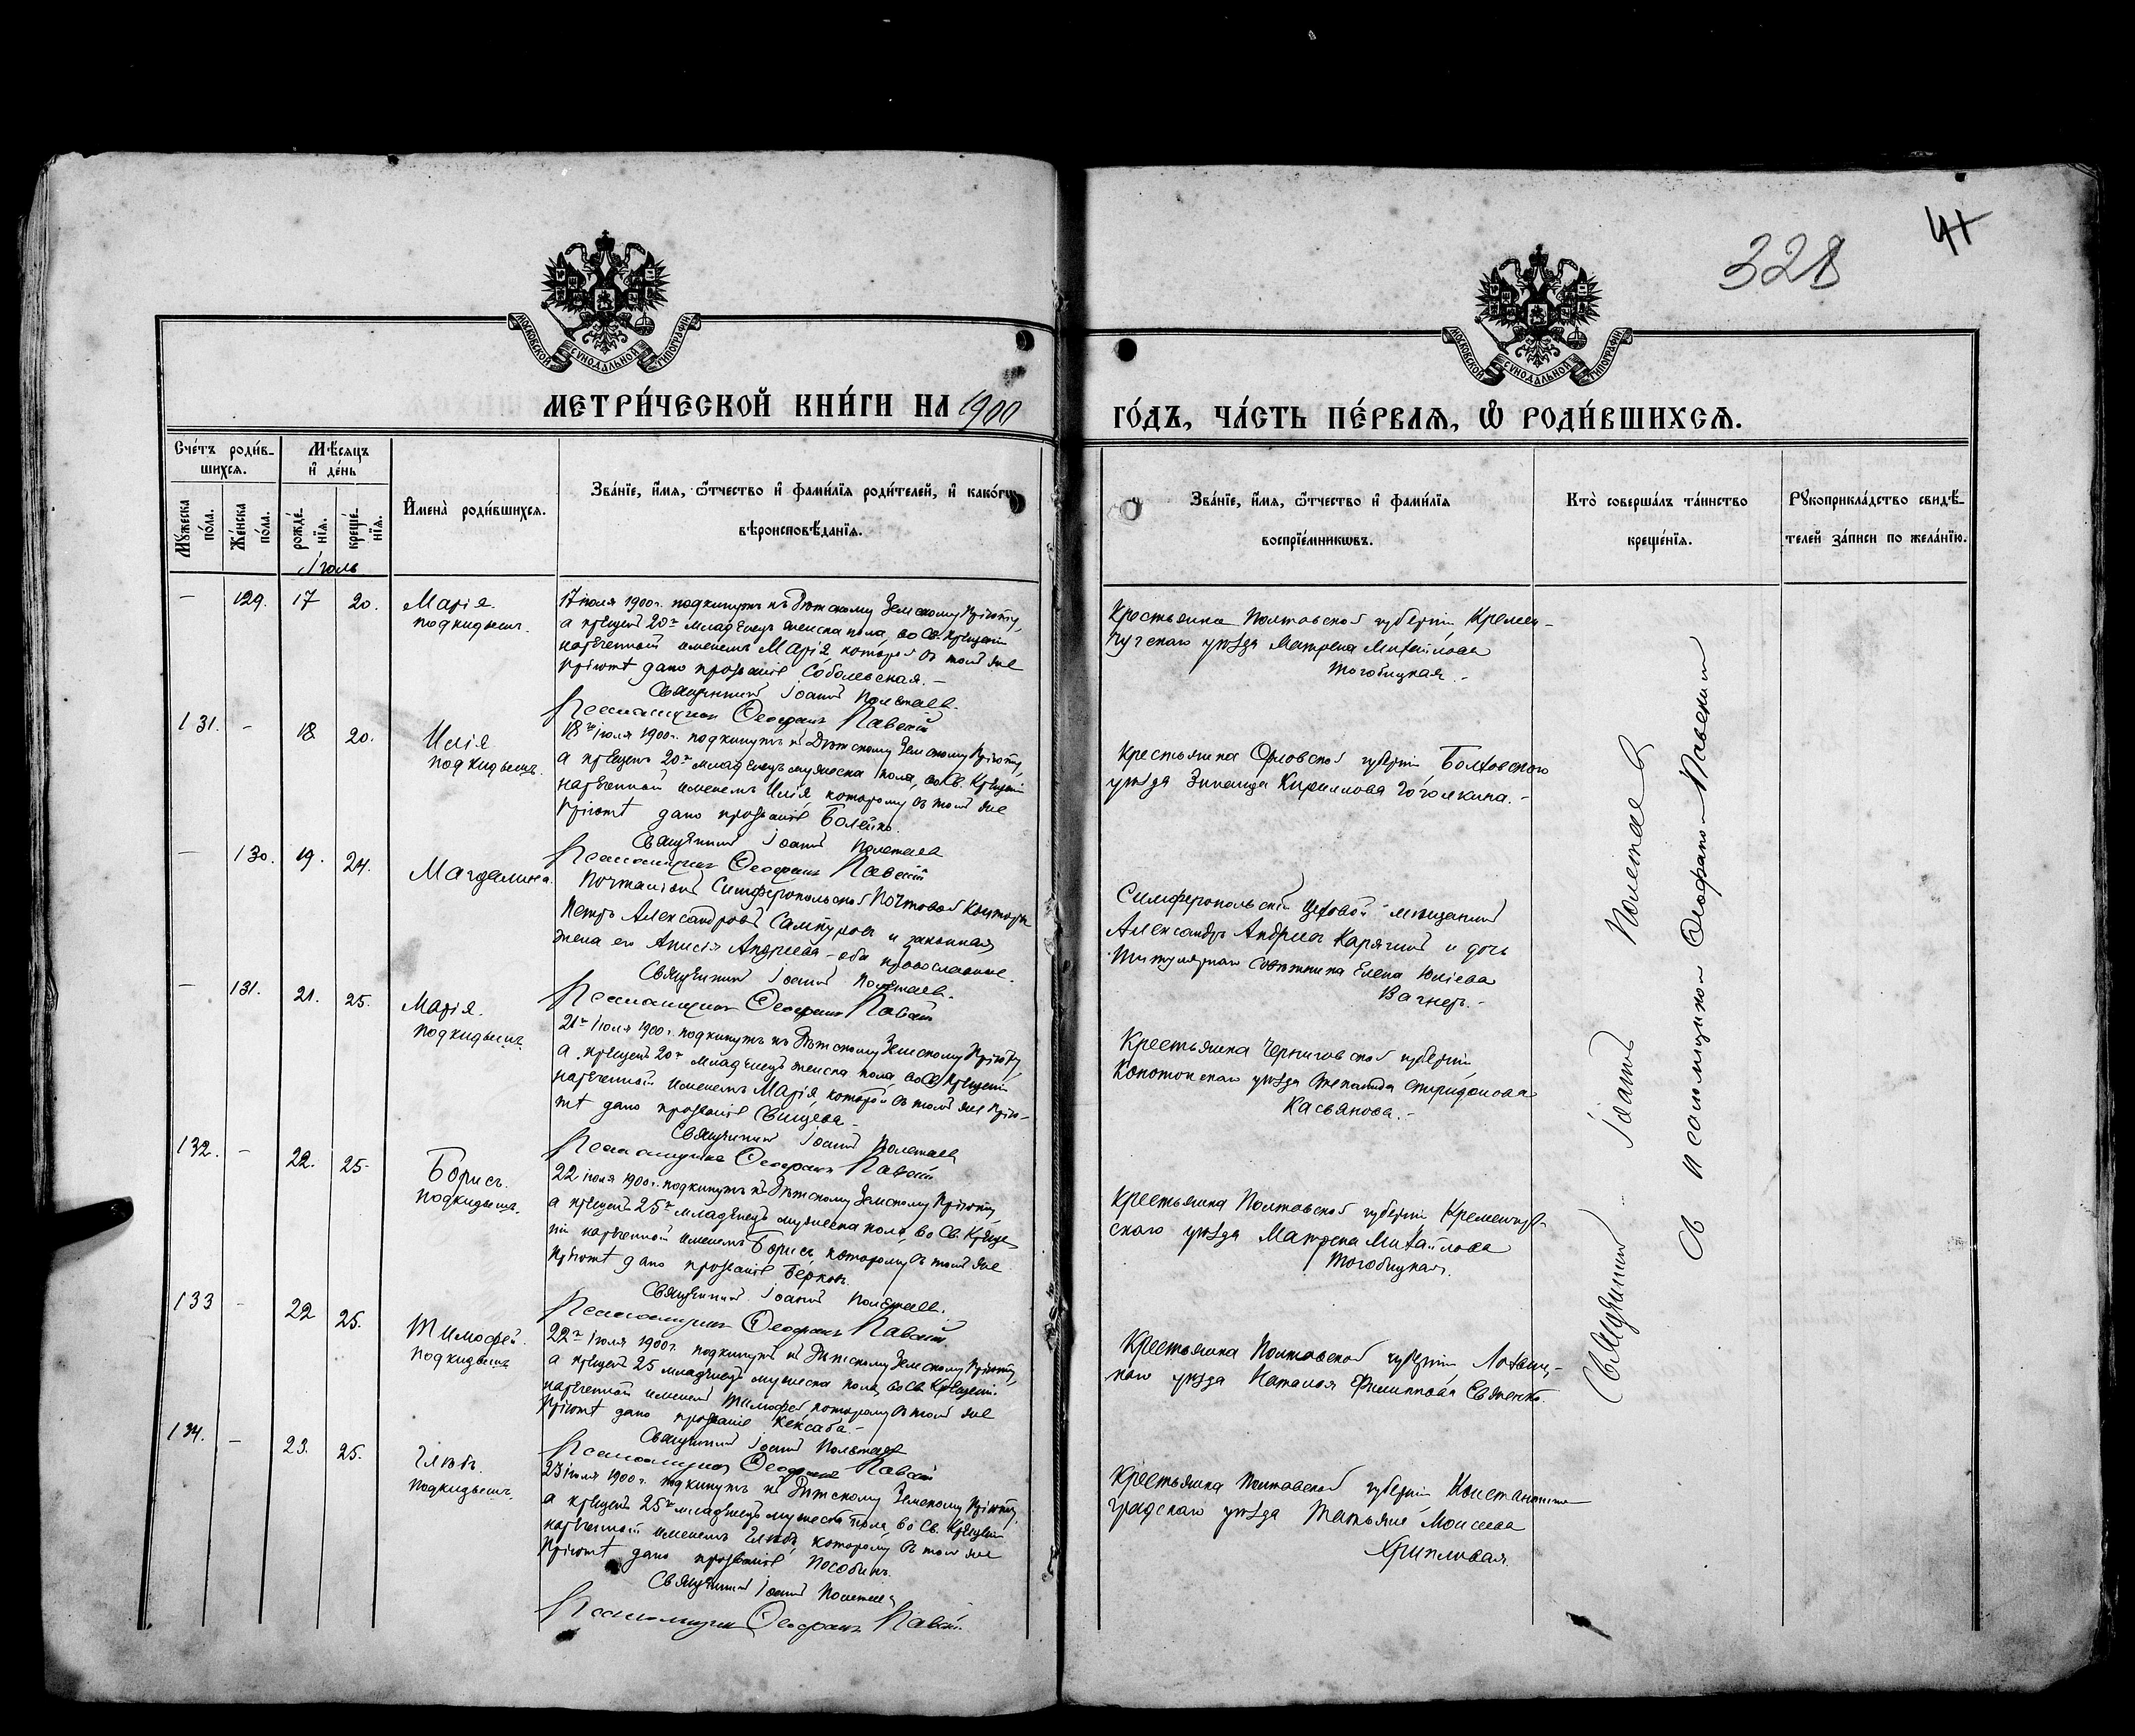 328
41
МОСКОВСКОЙ СУНОДАЛЬНОЙ ТИПОГРАФІИ
МОСКОВСКОЙ СУНОДАЛЬНОЙ ТИПОГРАФІИ
МЕТРИ́ЧЕСКОЙ КНИ́ГИ НА 1900
ГО́ДЪ, ЧА́СТЬ ПЕ́РВАѦ, Ѡ҆ РОДИ́ВШИХСѦ.
Сче́тъ роди́в-
шихсѧ.
Мѣ́сѧцъ
и҆ де́нь
Мꙋ́жеска
по́ла.
Же́нска
по́ла.
рожде́-
нїѧ.
креще́-
нїѧ.
И҆мена̀ роди́вшихсѧ.
Зва́нїе, и҆́мѧ, ѻ҆́тчество и҆ фами́лїѧ роди́телей, и҆ како́гѡ
вѣроисповѣ́данїѧ.
Зва́нїе, и҆́мѧ, ѻ҆́тчество и҆ фами́лїѧ
воспрїе́мникѡвъ.
Кто̀ соверша́лъ та́инство
креще́нїѧ.
Рꙋкоприкла́дство свидѣ́-
телей за́писи по жела́нїю.
Іюль
— 129. 17 20.
Марія.
подкидышъ.
17 іюля 1900 г. подкинутъ къ Дѣтскому Земскому Пріюту,
а крещенъ 20го младенецъ женска пола, во Св. Крещеніи
нареченный именемъ Марія которой въ томъ же
Пріютѣ дано прозваніе Соболевская. —
Священникъ Іоаннъ Полетаевъ.
Псаломщикъ Ѳеофанъ Павскій
Крестьянка Полтавской губерніи Кремен-
чугскаго уѣзда Матрена Михайлова
Тогобицкая. -
131. - 18 20.
Илія
подкидышъ.
18го іюля 1900 г. подкинутъ къ Дѣтскому Земскому Пріюту,
а крещенъ 20го младенецъ мужеска пола, во Св. Крещеніи
нареченный именемъ Илія которому въ томъ же
Пріютѣ дано прозваніе Болейко.
Священникъ Іоаннъ Полетаевъ
Псаломщикъ Ѳеофанъ Павскій
Крестьянка Орловской губерніи Болховского
уѣзда Зинаида Кириллова Гоголкина. -
— 130. 19. 24.
Магдалина.
Почталіонъ Симферопольской Почтовой Конторы
Петръ Александровъ Сампуровъ и законная
жена его Анисія Андреева - оба православные.
Священникъ Іоаннъ Полетаевъ.
Псаломщикъ Ѳеофанъ Павскій
Симферопольскій Цеховой мѣщанинъ
Александръ Андреевъ Карягинъ и дочь
Титулярнаго Совѣтника Елена Юліева
Вагнеръ. -
- 131. 21. 25.
Марія.
подкидышъ.
21го Іюля 1900 г. подкинутъ къ Дѣтскому Земскому Пріюту,
а крещенъ 20го младенецъ женска пола, во Св. Крещеніи
нареченный именемъ Марія, которой въ томъ же Прію-
тѣ дано прозваніе Свищева -
Священникъ Іоаннъ Полетаевъ
Псаломщикъ Ѳеофанъ Павскій
Крестьянка Черниговской губерніи
Конотопскаго уѣзда Спиридонова
Касьянова. -
132. - 22. 25.
Борисъ.
подкидышъ.
22 іюля 1900 г. подкинутъ къ Дѣтскому Земскому Пріюту,
а крещенъ 25го младенецъ мужеска пола, во Св. Креще-
ніи нареченный именемъ Борисъ, которому въ томъ же
Пріютѣ дано прозваніе Берковъ.
Священникъ Іоаннъ Полетаевъ.
Псаломщикъ Ѳеофанъ Павскій
Крестьянка Полтавской губерніи Кременчуг-
скаго уѣзда Матрена Михайлова
Тогобицкая.
133 - 22 25.
Тимофей.
подкидышъ
22го Іюля 1900 г. подкинутъ къ Дѣтскому Земскому Пріюту,
а крещенъ 25 младенецъ мужеска пола, во Св. Крещеніи
нареченный именемъ Тимофей которому въ томъ же
Пріютѣ дано прозваніе Кексаба. -
Священникъ Іоаннъ Полетаевъ
Псаломщикъ Ѳеофанъ Павскій
Крестьянка Полтавской губерніи
уѣзда Наталья Филиппова
134. - 23. 25.
Глѣбъ.
подкидышъ.
23 іюля 1900 г. подкинутъ къ Дѣтскому Земскому Пріюту,
а крещенъ 25го младенецъ мужеска пола, во Св. Крещеніи
нареченный именемъ Глѣбъ, которому въ томъ же
Пріютѣ дано прозваніе Пособинъ.
Священникъ Іоаннъ Полетаевъ
Псаломщикъ Ѳеофанъ Павскій.
Крестьянка Полтавской губерніи Константино-
градскаго уѣзда Татьяна Моисеева
Хрипливая.
Священникъ Іоаннъ Полетаевъ
съ псаломщикомъ Ѳеофаномъ Павскимъ